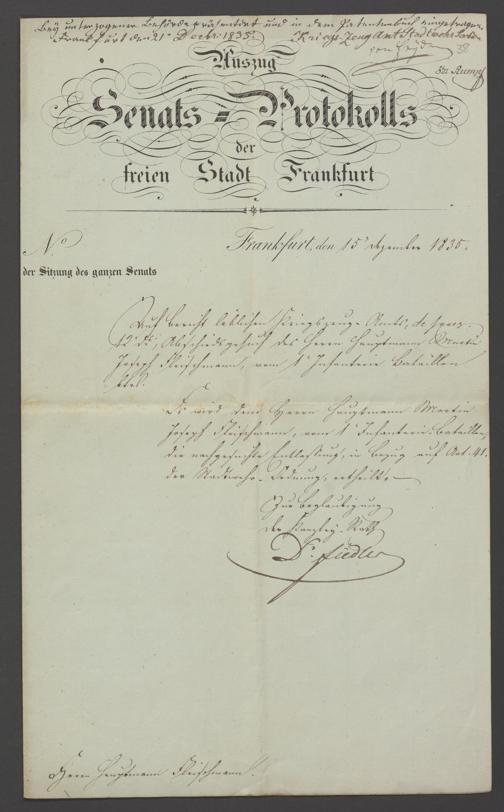 Bey unterzogener Behörde präsentirt und in dem Patentenbuch eingetragen.
Frankfurt den 21 Decbr 1835. Kriegs Zeug Amt Stadtwehr
Auszug
Senats = Protokolls
der
freien Stadt Frankfurt
No
Frankfurt, den 15t Dezember 1835.
der Sitzung des ganzen Senats
Auf Bericht löblichen Kriegszeug-Amts, de praes.
12 ds, Abschiedsgesuch des Herrn Hauptmann Martin
Joseph Fleischmann, vom 1t Infanterie Bataillon
btr.
Es wird dem Herrn Hauptmann Martin
Joseph Fleischmann, vom 1t Infanterie-Bataillon,
die nachgesuchte Entlassung, in Bezug auf Art. 41.
der Stadtwehr-Ordnung, ertheilt.
Zur Beglaubigung
Der Kanzley-Rath
Dr. Fiedler
Herrn Hauptmann Fleischmann.